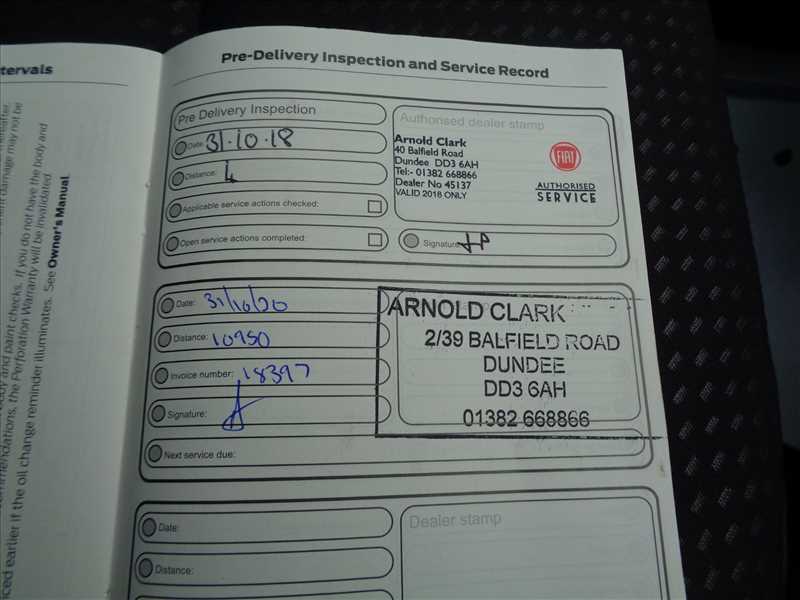 tervals
ent damage may not be
body and paint checks. If you do not have the body and
ommendations, the Perforation Warranty will be invalidated.
iced earlier if the oil change reminder illuminates. See Owner's Manual.
Pre-Delivery Inspection and Service Record
Pre Delivery Inspection
Date: 31·10·18
Distance: 4
Applicable service actions checked:
Open service actions completed:
Authorised dealer stamp
Arnold Clark
40 Balfield Road
Dundee DD3 6AH
Tel:- 01382 668866
Dealer No 45137
VALID 2018 ONLY
FIAT
AUTHORISED
SERVICE
Signature:
Date: 31/10/20
Distance: 10950
Invoice number: 18397
Signature:
Next service due:
ARNOLD CLARK
2/39 BALFIELD ROAD
DUNDEE
DD3 6AH
01382 668866
Date:
Distance:
Dealer stamp